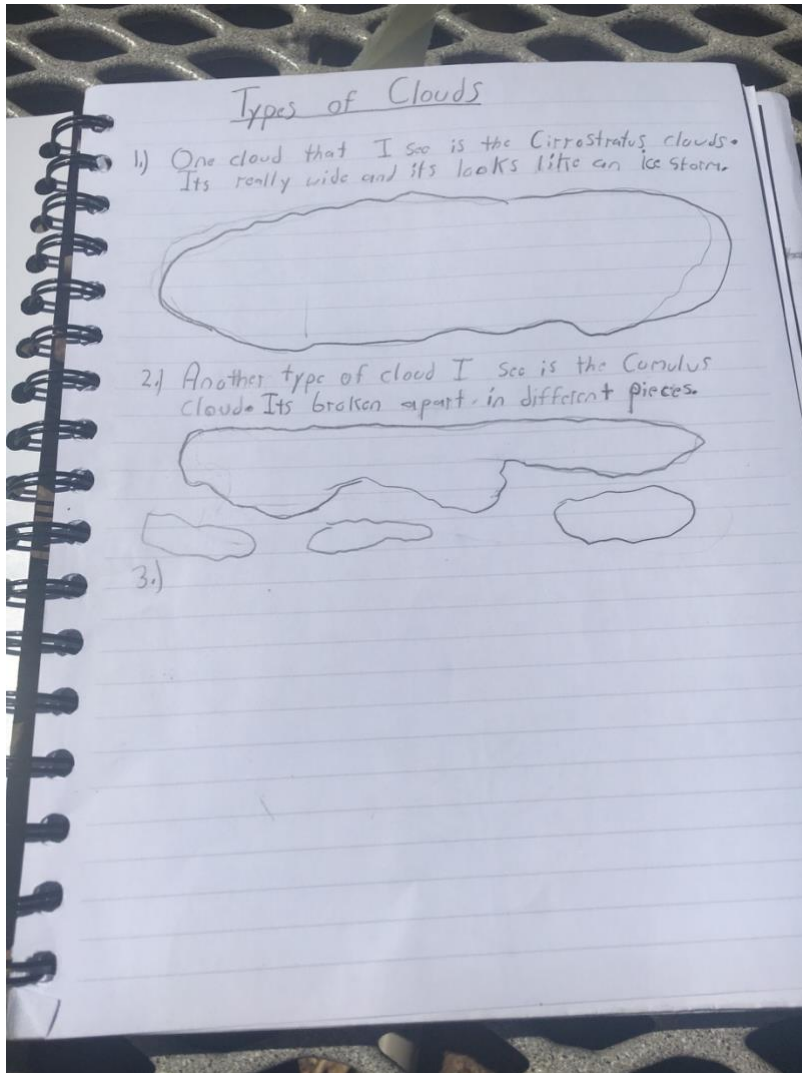 Types of Clouds
1.) One cloud that I see is the Cirrostratus clouds.
Its really wide and its looks like an ice storm.
2.) Another type of cloud I see is the Cumulus
cloud. Its broken apart in different pieces.
3.)